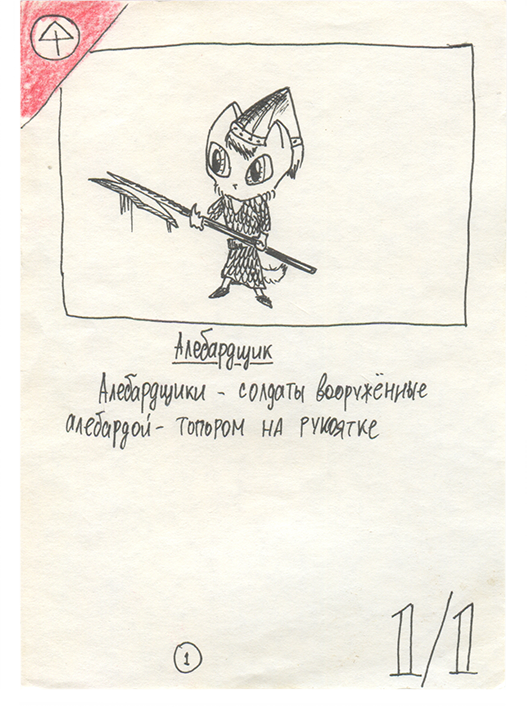 Алебардщик
Алебардщики - солдаты вооружённые
алебардой - топором на рукоятке
1
1/1